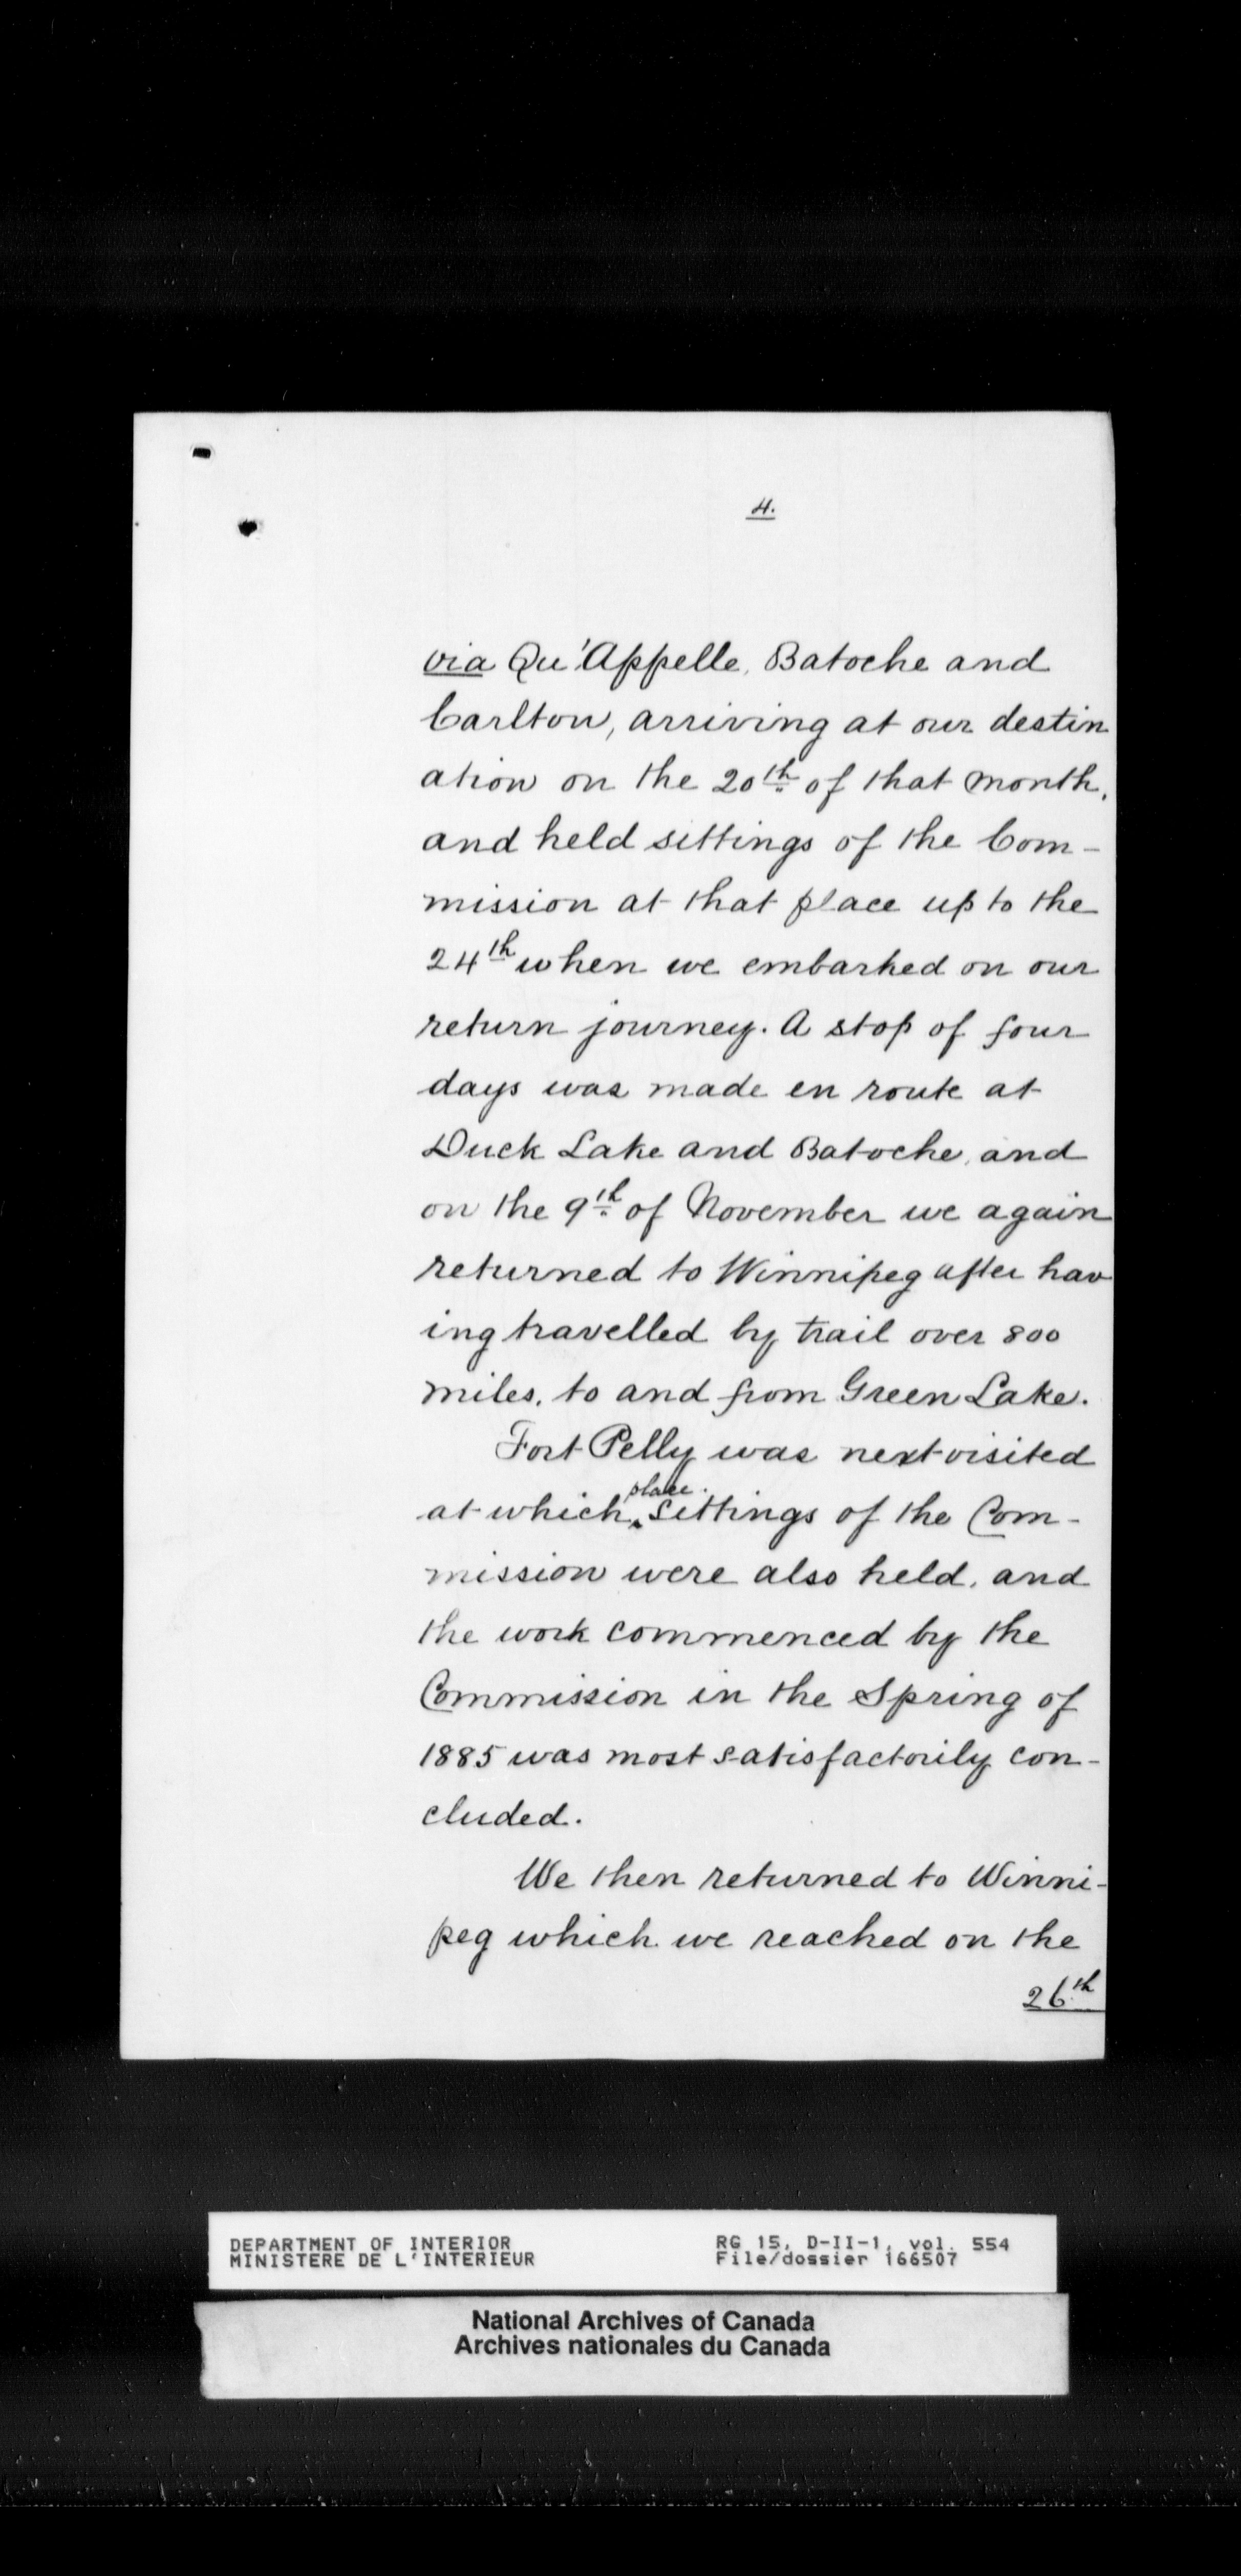 4.
via Qu'Appelle, Batoche and
Carlton, arriving at our destin
ation on the 20th of that month,
and held sittings of the Com-
mission at that place up to the
24th when we embarked on our
return journey. A stop of four
days was made en route at
Duck Lake and Batoche, and
on the 9th of November we again
returned to Winnipeg after hav
ing travelled by trail over 800
miles, to and from Green Lake.
Fort Pelly was next visited
at which place sittings of the Com-
mission were also held, and
the work commenced by the
Commission in the Spring of
1885 was most satisfactorily con-
cluded.
We then returned to Winni-
peg which we reached on the
26th
DEPARTMENT OF INTERIOR
MINISTERE DE L'INTERIEUR
RG 15, D-II-1, vol. 554
File/dossier 166507
National Archives of Canada
Archives nationales du Canada